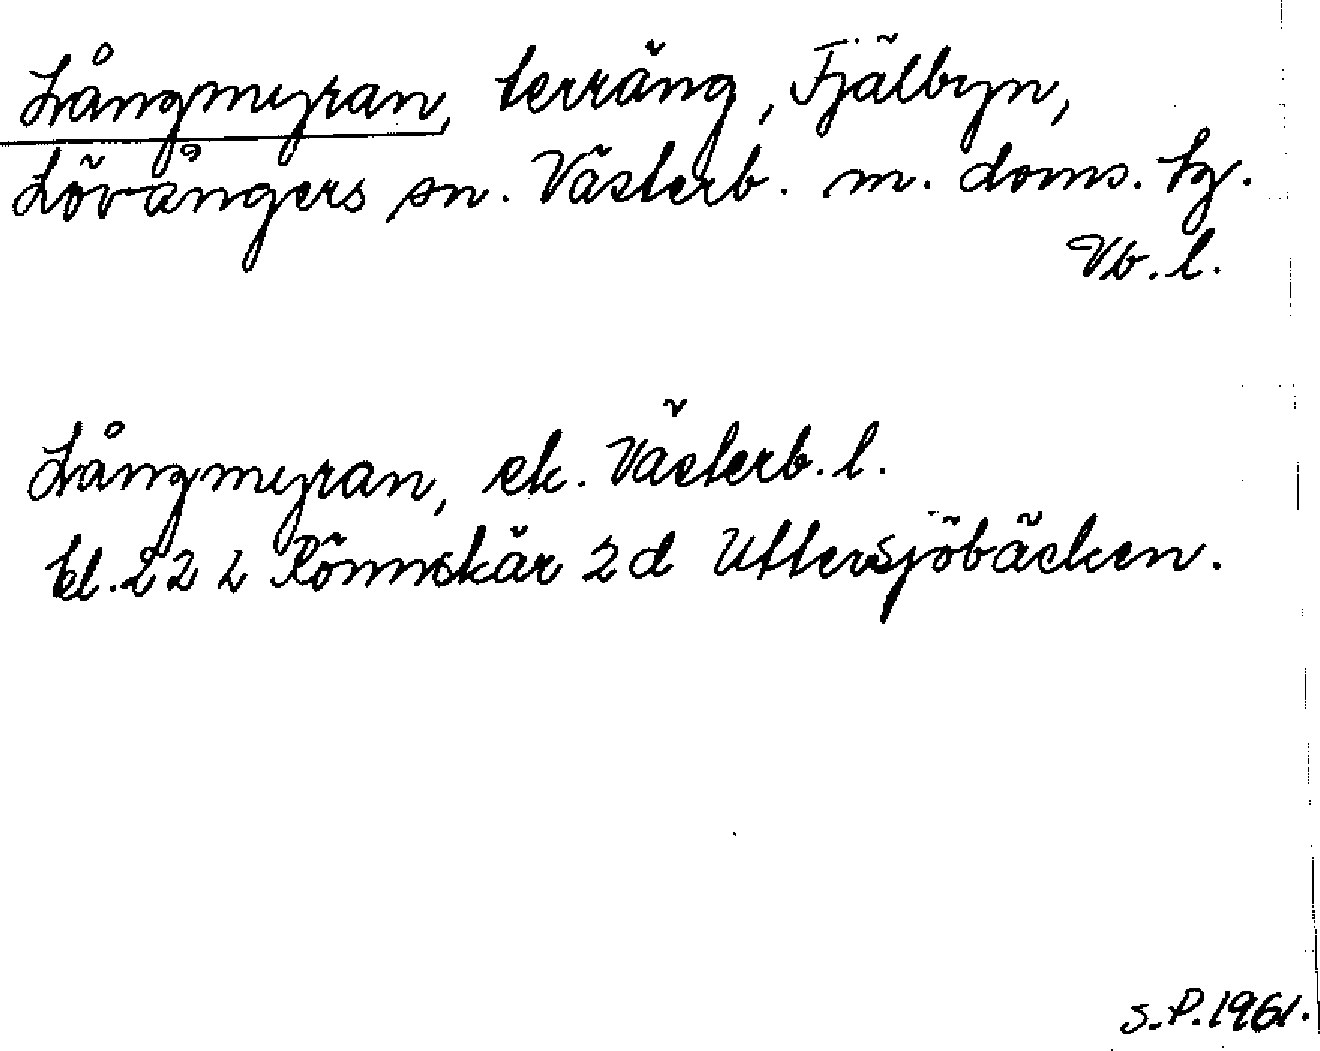 Långmyran, terräng, Fjälbyn,
Lövångers sn. Västerb. m. doms. tg.
Vb. l.
Långmyran, ek. Västerb. l.
bl. 22 L Rönnskär 2d Uttersjöbäcken.
S.P. 1961.